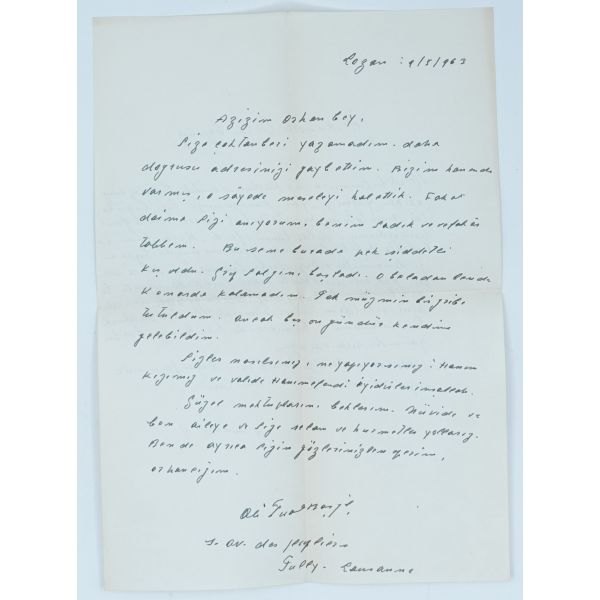 Lozan : 9/5/963
Azizim Orhan bey,
Size çoktanberi yazamadım. daha
doğrusu adresinizi gaybettim. Bizim hanımda
varmış, o sâyede meseleyi halettik. Fakat
daima sizi anıyorum, benim sadık ve vefakâr
Bu sene burada pek şiddetli
kış oldu. Grip salgını başladı. O beladan bende
kenarda kalamadım. Pek müzmin bir gribe
tutuldum. Ancak beş on gündür kendime
gelebildim.
Sizler nasılsınız, ne yapıyorsunuz? Hanım
kızımız ve valide Hanımefendi iyidirler inşallah.
Güzel mektuplarını beklerim. Nüvide ve
ben aileye ve size selam ve hürmetler yollarız.
Bende ayrıca sizin gözlerinizden öperim,
Orhancığım.
Ali Fuat Başgil
av. des
Pully - Lausanne